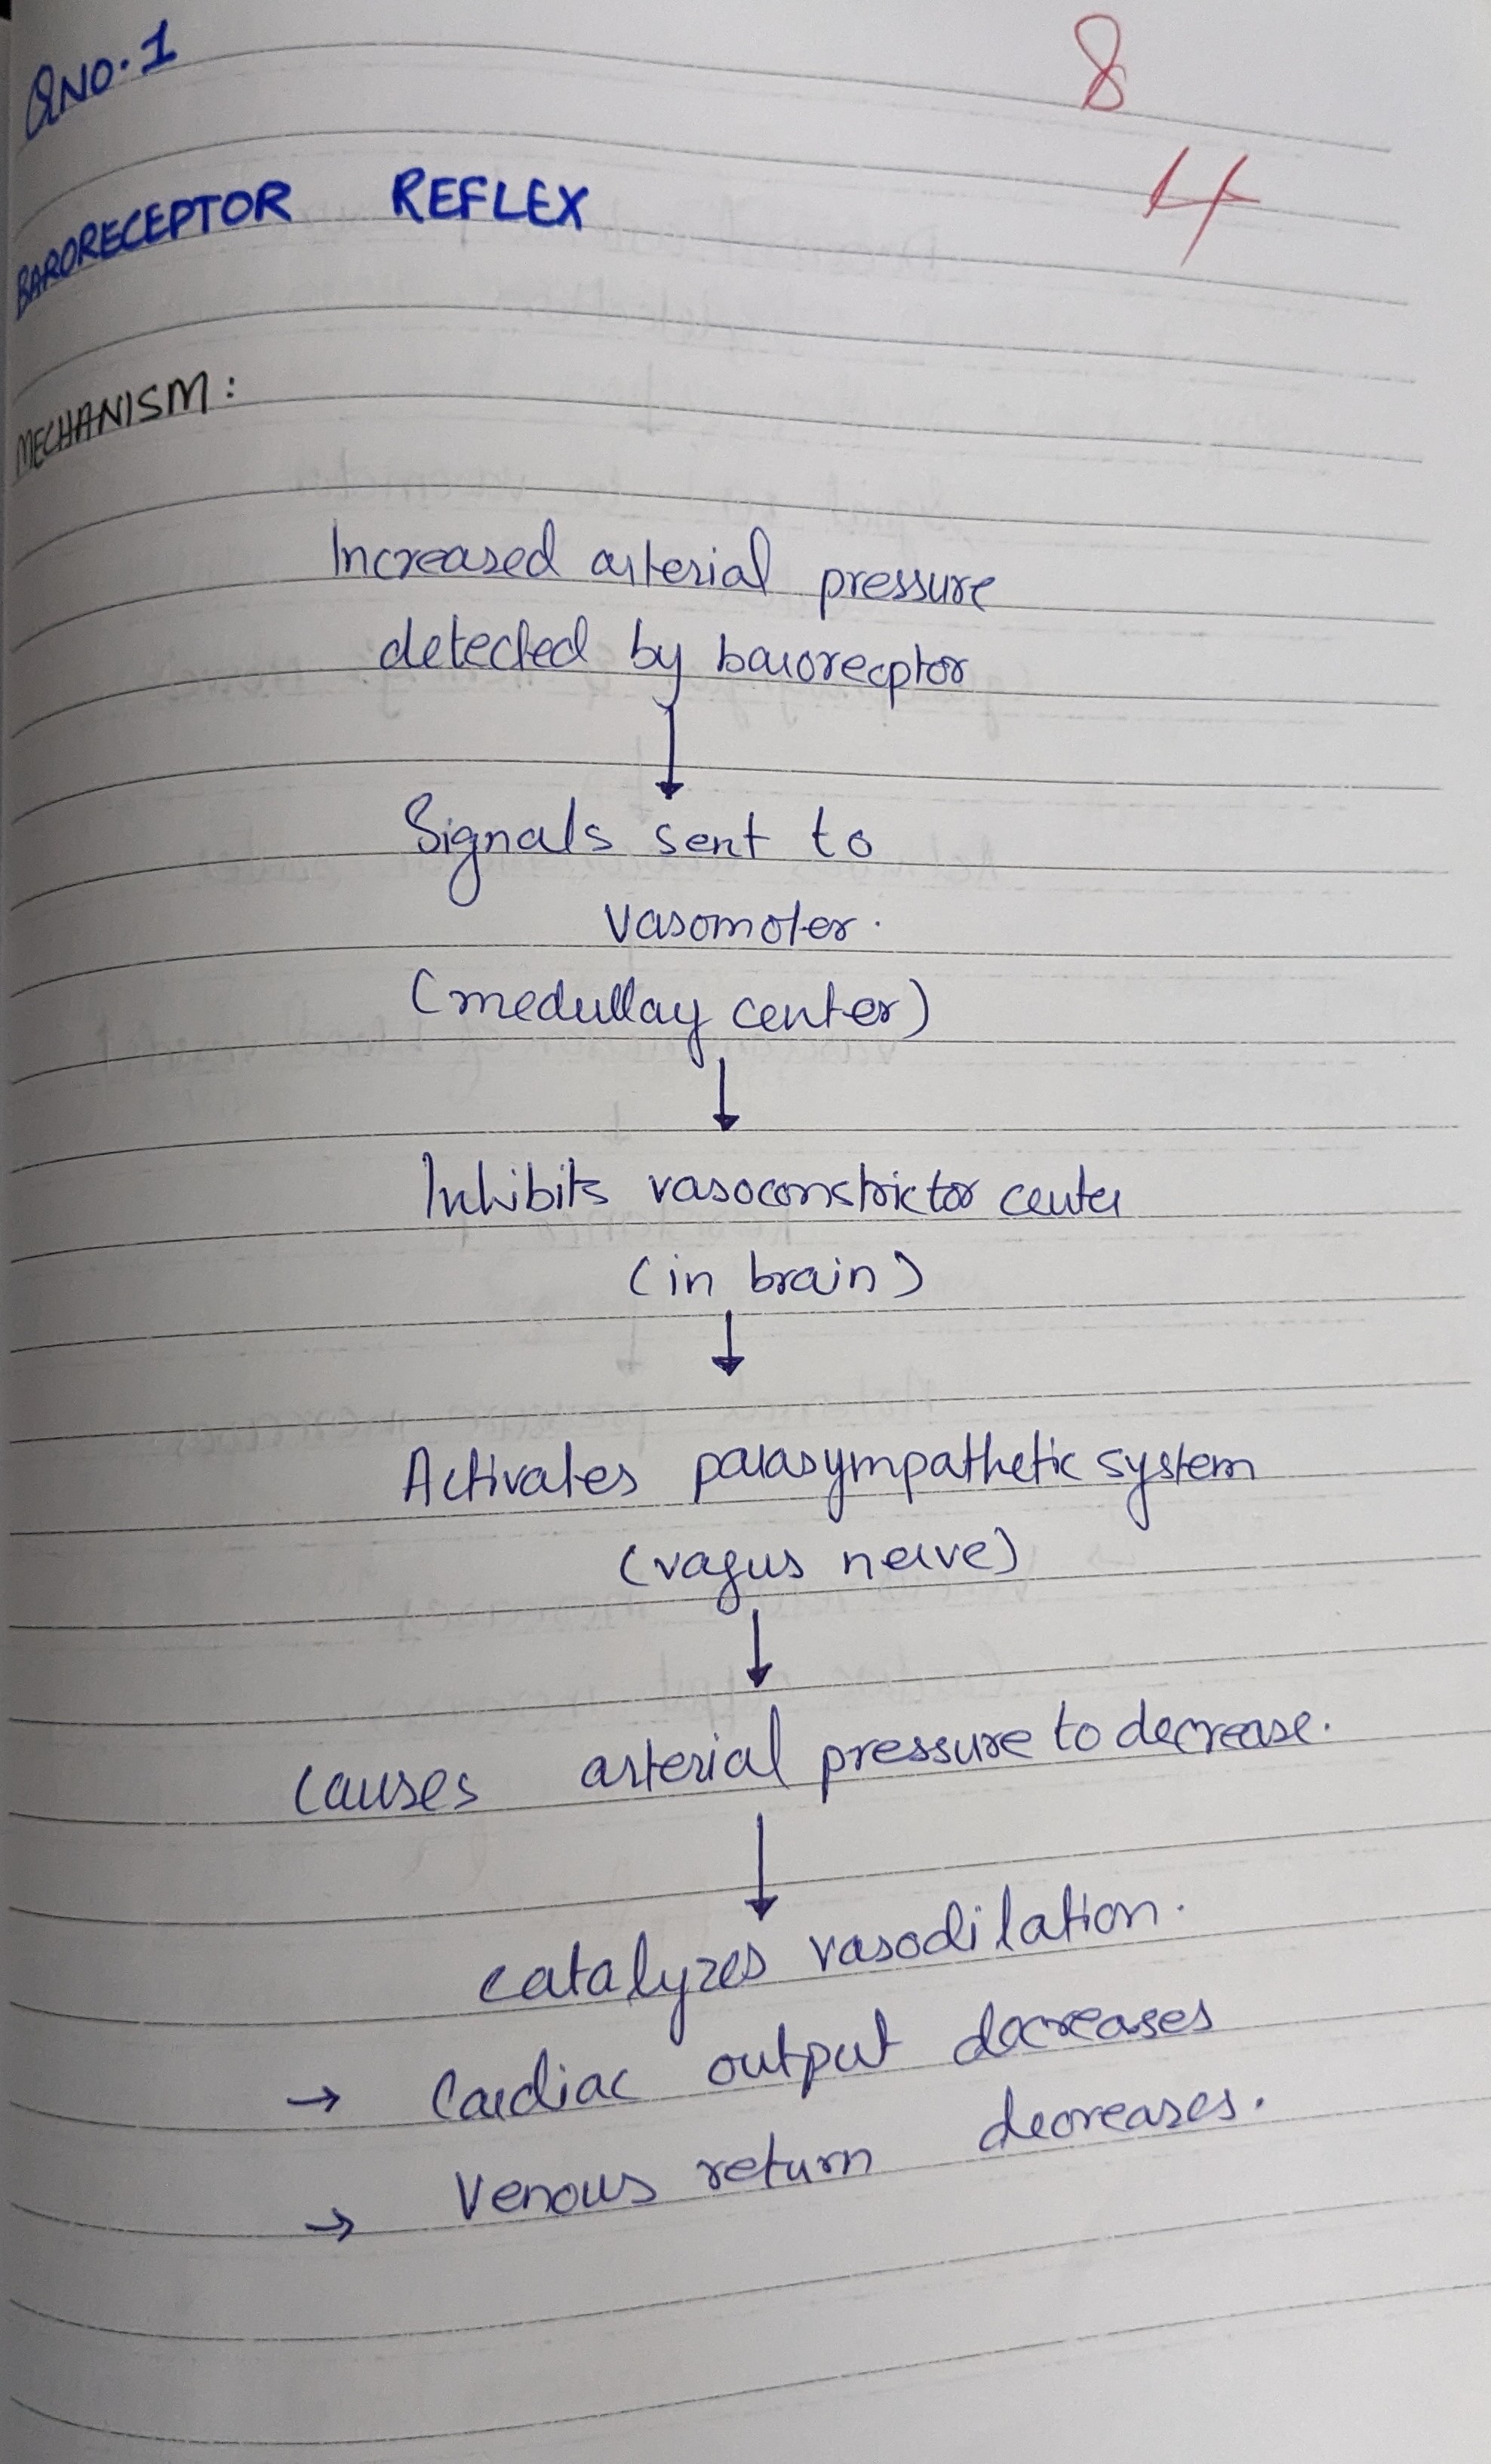 QNO.1
8
4
BARORECEPTOR REFLEX
MECHANISM:
Increased arterial pressure
detected by baroreceptor
Signals sent to
vasomoter.
(medullay center)
Inhibits vasoconstrictor center
(in brain)
Activates parasympathetic system
(vagus nerve)
Causes arterial pressure to decrease.
catalyzes vasodilation.
→ Cardiac output decreases
→ Venous return decreases.